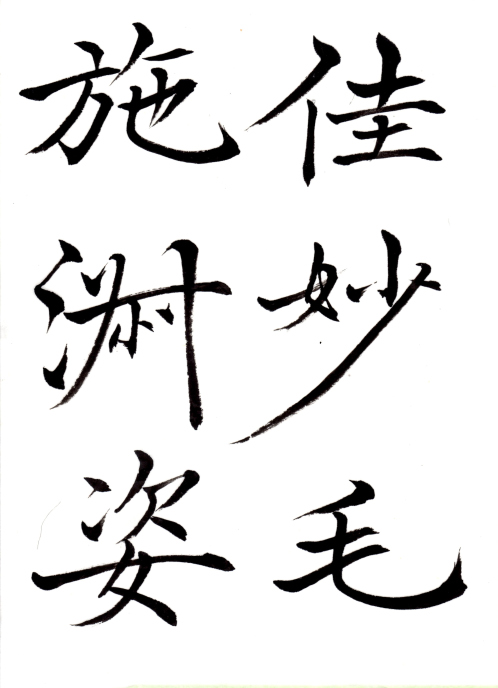 佳妙毛
施淑姿